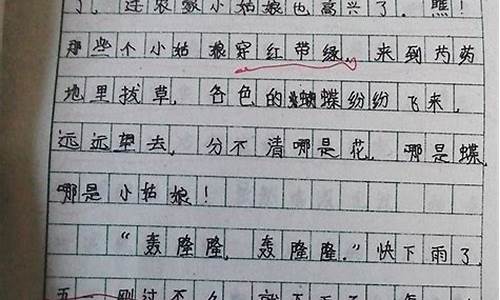 了，连农家小姑娘也高兴了．瞧！
那些个小姑娘穿红带绿，来到芍药
地里拔草，各色的蝴蝶纷纷飞来，
远远望去，分不清哪是花，哪是蝶，
哪是小姑娘！
“轰隆隆，轰隆隆．”快下雨了，